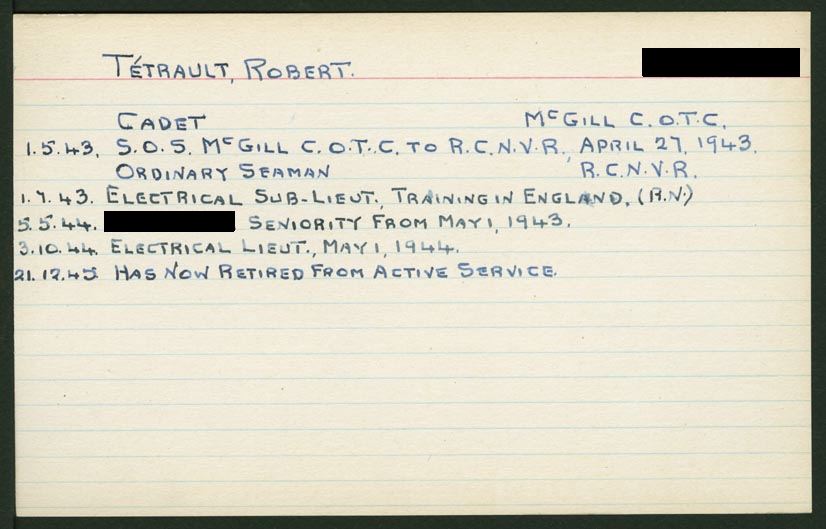 TÉTRAULT, ROBERT.
CADET McGILL C.O.T.C.
1.5.43. S.O.S. McGILL C.O.T.C. TO R.C.N.V.R., APRIL 27, 1943.
ORDINARY SEAMAN R.C.N.V.R.
1.7.43. ELECTRICAL SUB-LIEUT., TRAINING IN ENGLAND, (R.N.)
5.5.44. SENIORITY FROM MAY 1, 1943.
3.10.44. ELECTRICAL LIEUT., MAY 1, 1944.
21.12.45 HAS NOW RETIRED FROM ACTIVE SERVICE.